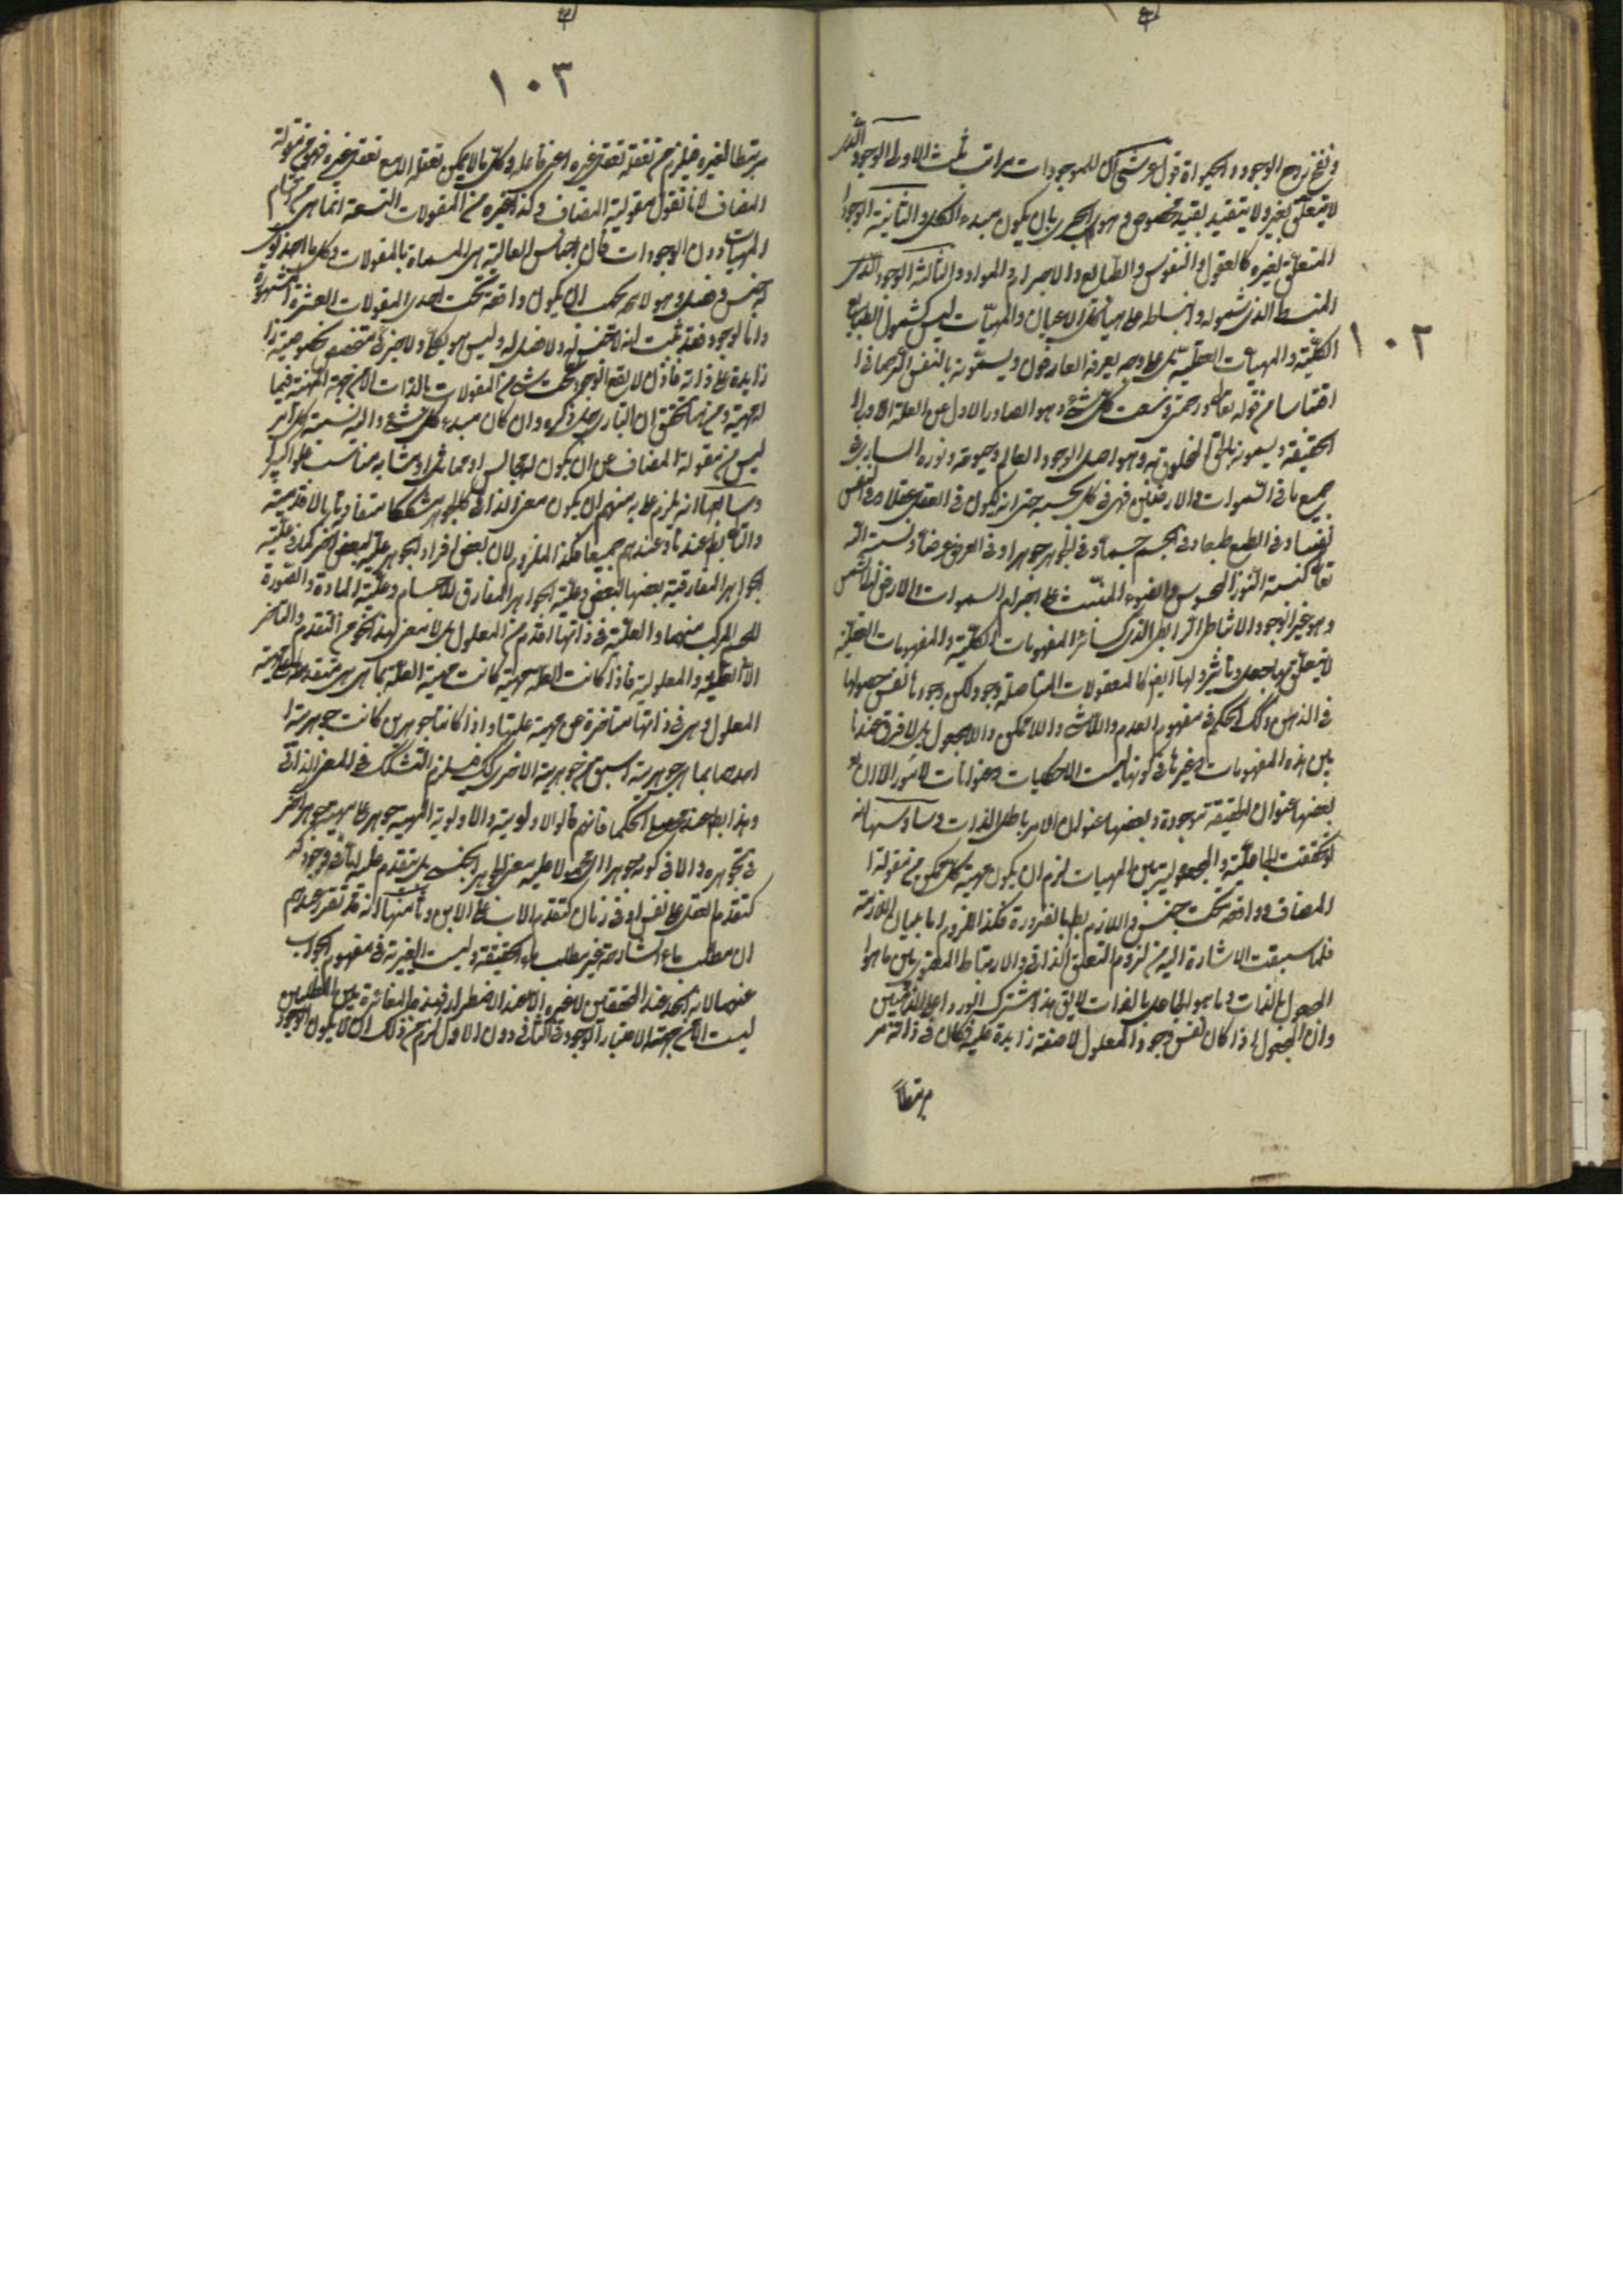 ١٠٢
ونفخ روح الوجود والحيوة قول عرشي ان للموجودات مراتب ثلث الاولى الوجود الذي
لا يتعلق بغيره ولا يتقيد بقيد مخصوص وهو الحري بان يكون مبدء الكل والثانية الوجود
المتعلق بغيره كالعقول والنفوس والطبايع والاجرام والمواد والثالثة الوجود الذي
المنبسط الذي شموله وانبساطه على هياكل الاعيان والمهيات ليس كشمول الطبايع
الكلية والمهيات العقلية بل على وجه يعرفه العارفون ويسمونه بالنفس الرحماني
اقتباسا من قوله تعالى ورحمتي وسعت كل شيء وهو الصادر الاول عن العلة الاولى
الحقيقة ويسمونه بالحق المخلوق به وهو اصل الوجود العالم وحيوته ونوره الساري في
جميع ما في السموات والارضين فهو في كل بحسبه حتى انه يكون في العقل عقلا وفي النفس
نفسا وفي الطبع طبعا وفي الجسم جسما وفي الجوهر جوهرا وفي العرض عرضا ونسبته اليه
تعالى كنسبة النور المحسوس والضوء المنبث على اجرام السموات والارض الى الشمس
وهو غير الوجود الاثباطي الرابطي الذي كسائر المفهومات الكلية والمفهومات العقلية
لا يتعلق بها جعل وتاثير ولها ايضا كالمعقولات المتاصلة وجود لكن وجودها نفس حصولها
في الذهن وكذلك الحكم في مفهوم العدم واللاشيء واللاممكن واللامجعول بل لا فرق عندنا
بين هذه المفهومات وغيرها في كونها ليست الا حكايات وعنوانات لامور الا ان
بعضها عنوان لحقيقة موجودة وبعضها عنوان لامر باطل الذات وسادسها انه
لو تحققت الجاعلية والمجعولية بين المهيات لزم ان يكون مهية كل ممكن من مقولة
المضاف وواقعة تحت جنسه واللازم بط بالضرورة فكذا الملزوم اما بيان الملازمة
فلما سبقت الاشارة اليه من لزوم التعلق الذاتي والارتباط المعنوي بين ما هو
المجعول بالذات وما هو الجاعل بالذات لا يق هذا مشترك الورود على المذهبين
وان المجعول اذا كان نفس وجود المعلول لا صفة زايدة عليه فكان في ذاته
مرتبطا
١٠٣
مرتبطا لغيره فيلزم من تعقله تعقل غيره اعني فاعله وكل ما لا يمكن تعقله الا مع تعقل غيره فهو من مقولة
المضاف لانا نقول مقولية المضاف وكذا غيره من المقولات التسعة انما هي من اقسام
المهيات دون الوجودات فان اجناس العالية هي المسماة بالمقولات وكل ما له حد نوعي
له جنس وفصل وهو لا محه يجب ان يكون واقعة تحت احدى المقولات العشرة المشهورة
واما الوجود فقد ثبت انه لا جنس له ولا فصل له وليس هو بكلي ولا جزئي متخصص بخصوصية
زايدة على ذاته فاذن لا يقع الوجود تحت شيء من المقولات بالذات الا من جهة المهية فيما
له مهية ومن هنا تحقق ان الباري جل ذكره وان كان مبدء كل شيء واليه نسبة كل امر
ليس من مقولة المضاف عن ان يكون له مجانس او مماثل او مشابه مناسب علوا كبيرا
وسابعها انه يلزم على مذهبهم ان يكون معنى الذاتي كالجوهر مشككا متفاوتا بالاقدمية
والتالي بط عندنا وعندهم جميعا فكذا الملزوم لان بعض افراد الجوهر علة لبعض اخر كما في علية
الجواهر المفارقة بعضها لبعض وعلية الجواهر المفارق للاجسام وعلية المادة والصورة
للجسم المركب منهما والعلية في ذاتها اقدم من المعلول بل لا معنى لهذا النحو من التقدم والتاخر
الا العلية والمعلولية فاذا كانت العلة مهية كانت مهية العلة بما هي هي متقدمة على مهية
المعلول وهي في ذاتها متاخرة عن مهية علتها واذا كانتا جوهرين كانت جوهرية
احدهما بما هي جوهرية اسبق من جوهرية الاخرى كك فيلزم التشكيك في المعنى الذاتي
وهذا بط عند محصلي الحكما فانهم قالوا لا اولوية ولا اولوية لمهية جوهر على مهية جوهر اخر
في تجوهره ولا في كونه جوهرا اي محمولا عليه معنى الجوهر الجنسي بل يتقدم عليه اما في وجوده
كتقدم العقل على النفس او في زمان كتقدم الاب على الابن وثامنها انه قد تقرر عندهم
ان مطلب ماء الشارحة غير مطلب ماء الحقيقة وليست الغيرية في مفهوم الجواب
عنهما لانه الحد عند المحققين لا غيره الا عند الاضطرار فهذه المغائرة بين المطلبين
ليست الا من جهة الاعتبار الوجود في الثاني دون الاول لزم من ذلك ان لا يكون الوجود